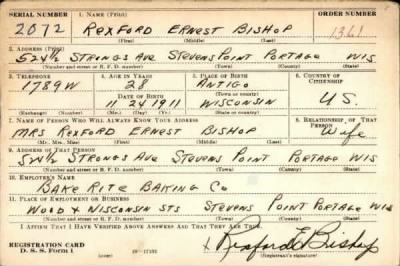 SERIAL NUMBER 1. NAME (Print) ORDER NUMBER
2072 REXFORD ERNEST BISHOP 1361
(First) (Middle) (Last)
2. ADDRESS (Print)
524½ STRONGS AVE STEVENS POINT PORTAGE WIS
(Number and street or R. F. D. number) (Town) (County) (State)
3. TELEPHONE 4. AGE IN YEARS 5. PLACE OF BIRTH 6. COUNTRY OF CITIZENSHIP
1789W 28 ANTIGO
DATE OF BIRTH (Town or county)
11 24 1911 WISCONSIN U.S.
(Exchange) (Number) (Mo.) (Day) (Yr.) (State or country)
7. NAME OF PERSON WHO WILL ALWAYS KNOW YOUR ADDRESS 8. RELATIONSHIP OF THAT PERSON
MRS REXFORD ERNEST BISHOP Wife
(Mr., Mrs., Miss) (First) (Middle) (Last)
9. ADDRESS OF THAT PERSON
524½ STRONGS AVE STEVENS POINT PORTAGE WIS
(Number and street or R. F. D. number) (Town) (County) (State)
10. EMPLOYER'S NAME
BAKE RITE BAKING CO
11. PLACE OF EMPLOYMENT OR BUSINESS
WOOD & WISCONSIN STS STEVENS POINT PORTAGE WIS
(Number and street or R. F. D. number) (Town) (County) (State)
I AFFIRM THAT I HAVE VERIFIED ABOVE ANSWERS AND THAT THEY ARE TRUE.
REGISTRATION CARD x Rexford E Bishop
D. S. S. Form 1 (Registrant's signature)